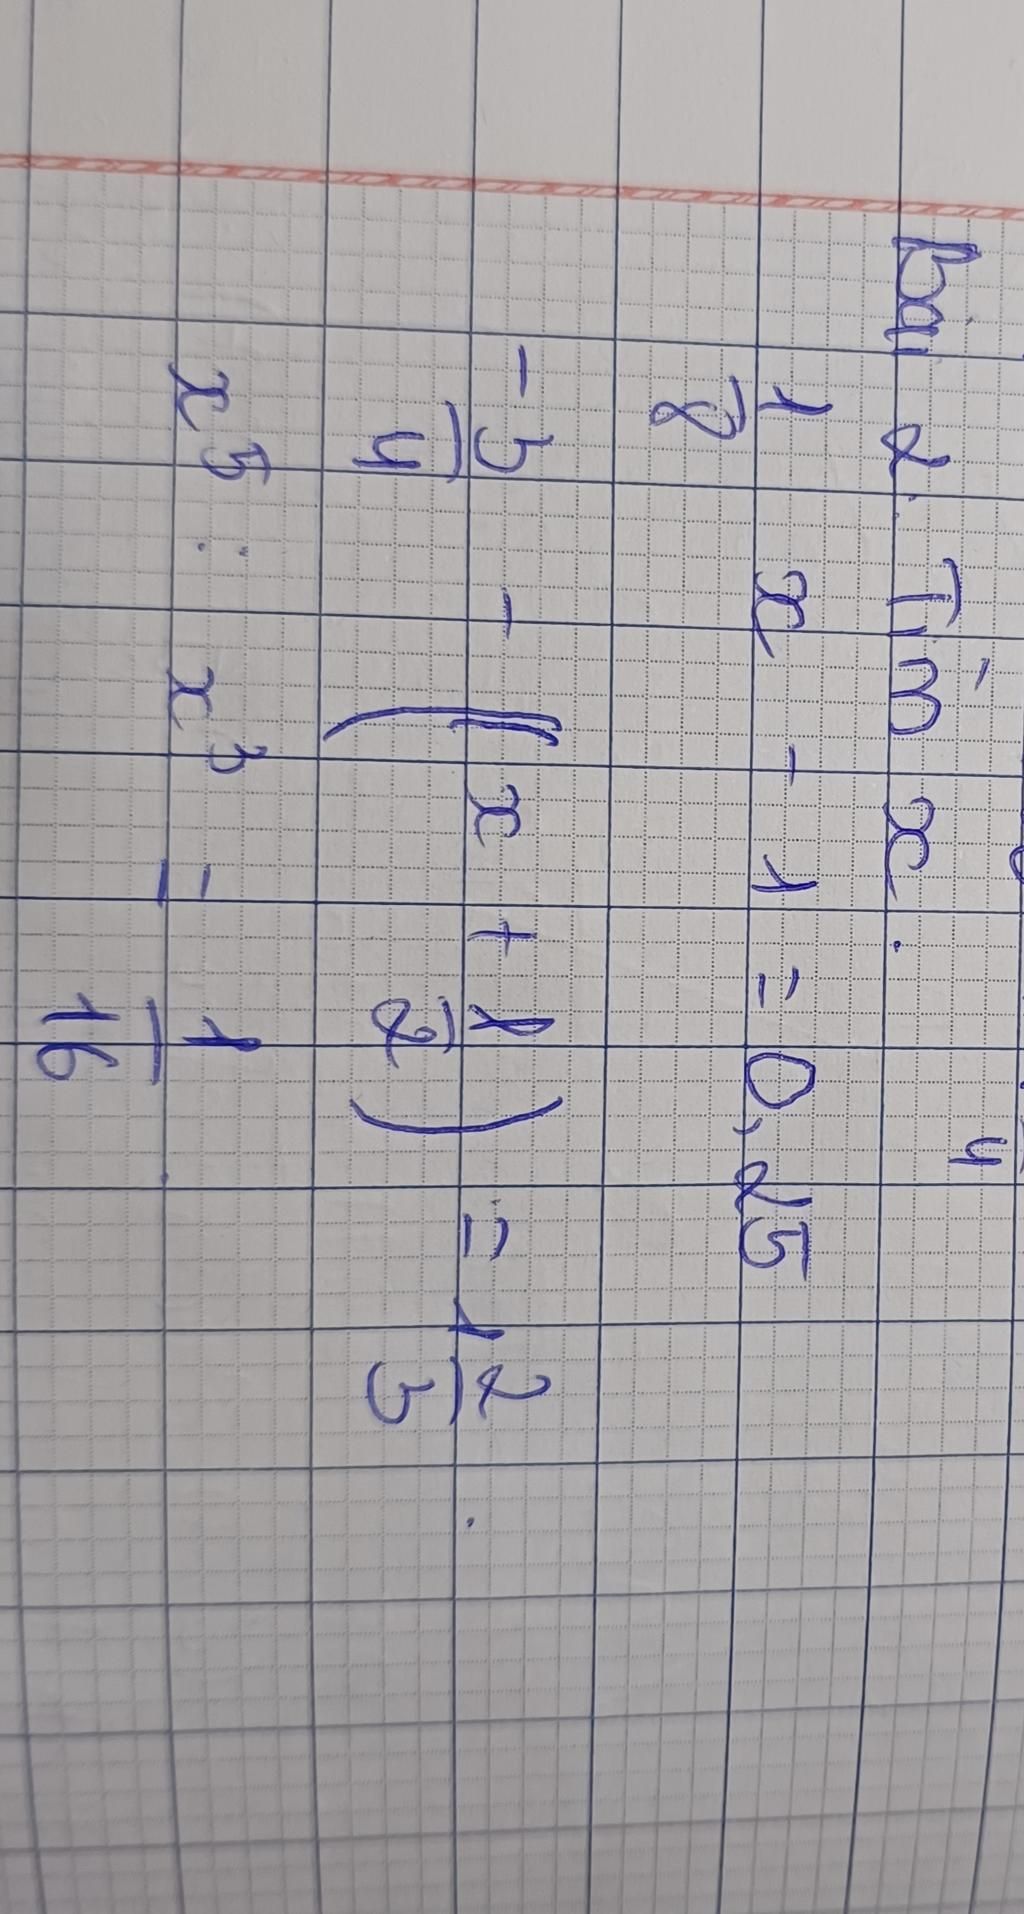 4
Bài 2. Tìm x.
1/8 x - 1 = 0,25
-3/4 - (x + 1/2) = 1 2/3.
x^5 : x^3 = 1/16.